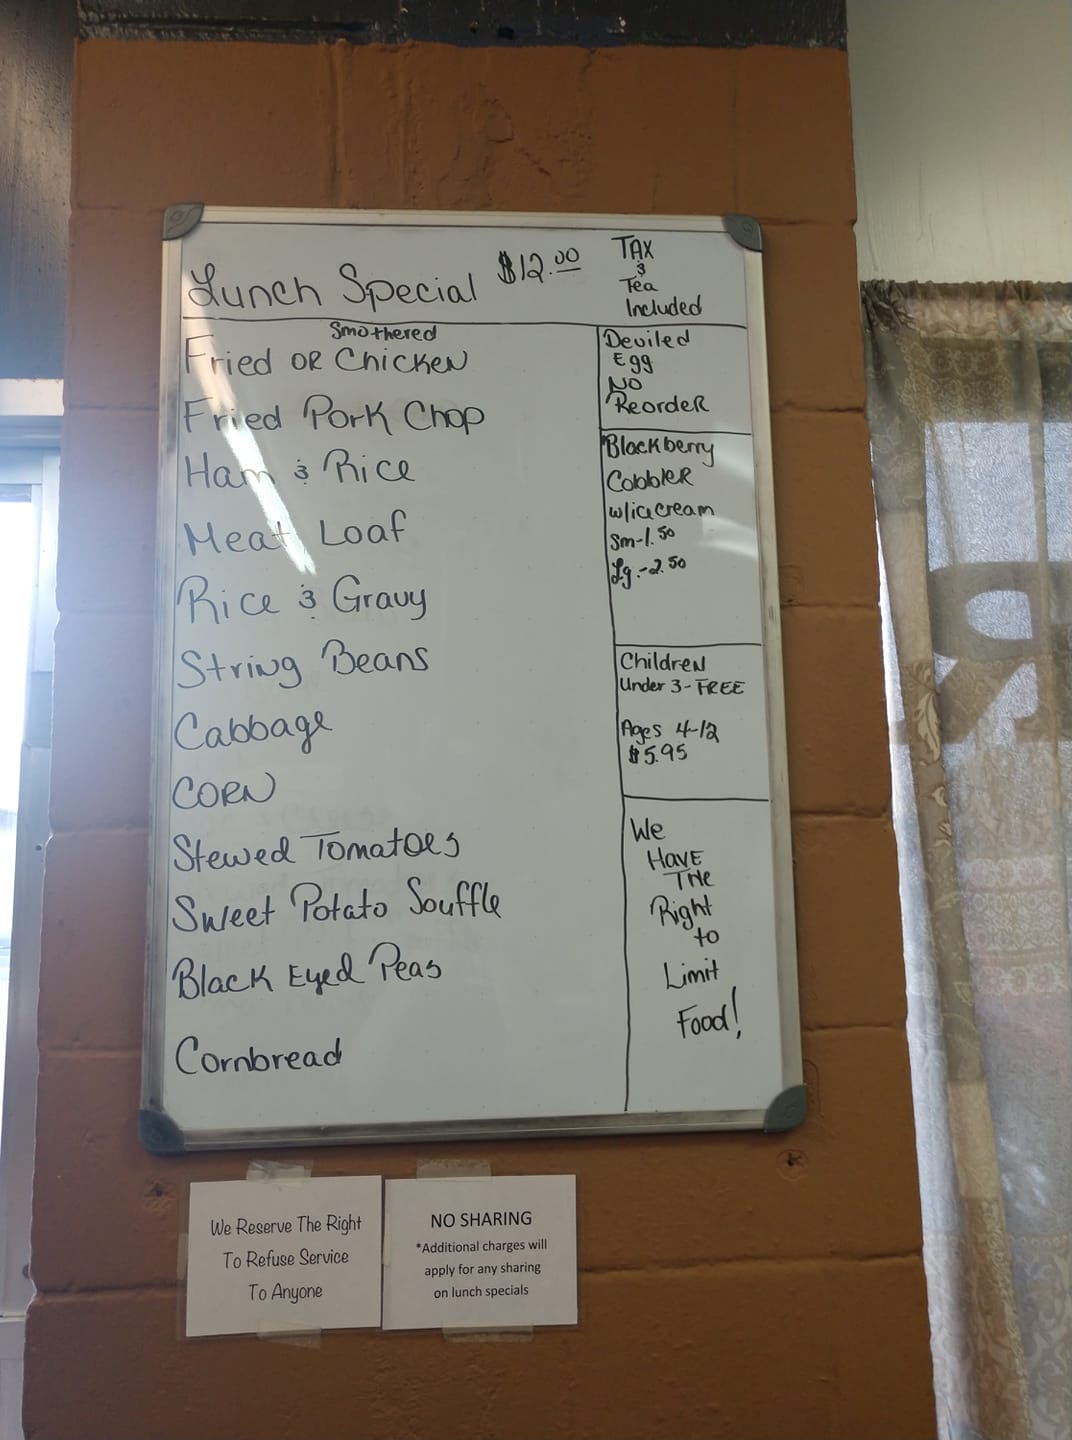 Lunch Special $12.00
TAX
&
Tea
Included
Smothered
Fried OR Chicken
Fried Pork Chop
Ham & Rice
Meat Loaf
Rice & Gravy
String Beans
Cabbage
CORN
Stewed Tomatoes
Sweet Potato Souffle
Black Eyed Peas
Cornbread
Deviled
Egg
NO
Reorder
Blackberry
Cobbler
w/ice cream
Sm-1.50
Lg.-2.50
Children
Under 3-FREE
Ages 4-12
$5.95
We
HAVE
THe
Right
to
Limit
Food!
R
We Reserve The Right
To Refuse Service
To Anyone
NO SHARING
*Additional charges will
apply for any sharing
on lunch specials